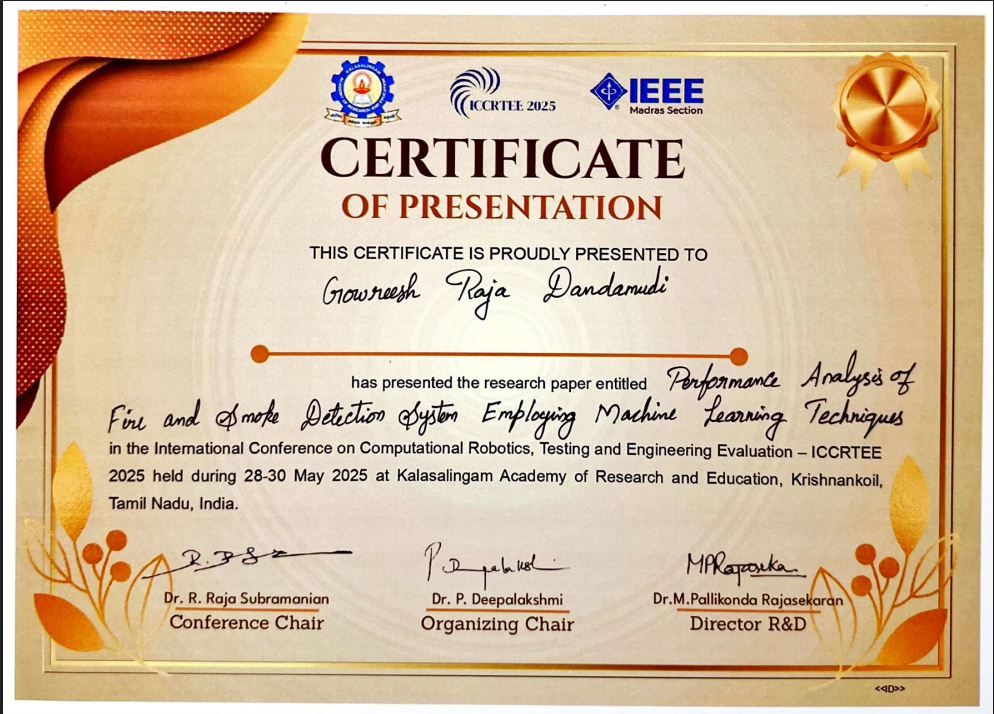 ICCRTEE 2025
IEEE
Madras Section
CERTIFICATE
OF PRESENTATION
THIS CERTIFICATE IS PROUDLY PRESENTED TO
Gowreesh Raja Dandamudi
has presented the research paper entitled Performance Analysis of
Fire and Smoke Detection System Employing Machine Learning Techniques
in the International Conference on Computational Robotics, Testing and Engineering Evaluation – ICCRTEE
2025 held during 28-30 May 2025 at Kalasalingam Academy of Research and Education, Krishnankoil,
Tamil Nadu, India.
Dr. R. Raja Subramanian
Dr. P. Deepalakshmi
Dr.M.Pallikonda Rajasekaran
Conference Chair
Organizing Chair
Director R&D
<<ID>>